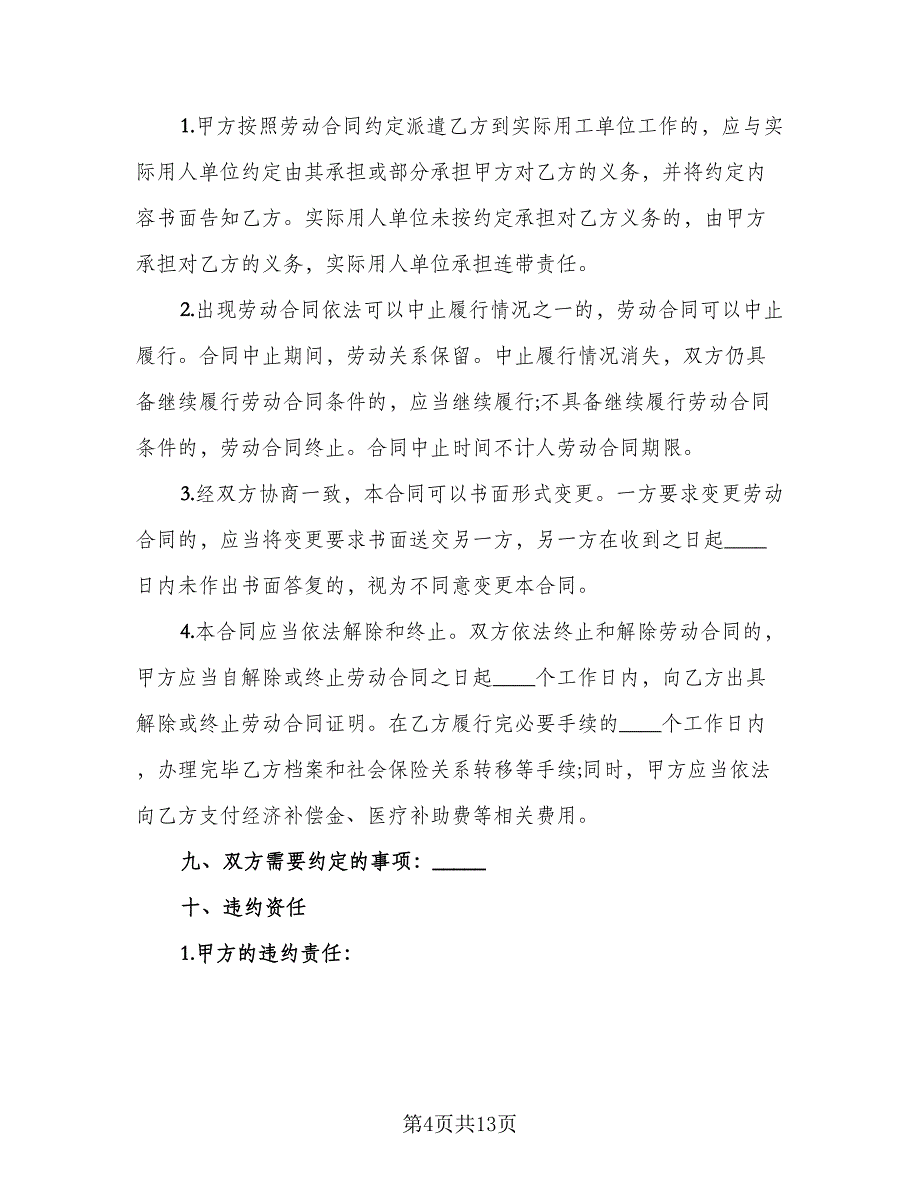 1.甲方按照劳动合同约定派遣乙方到实际用工单位工作的，应与实
际用人单位约定由其承担或部分承担甲方对乙方的义务，并将约定内
容书面告知乙方。实际用人单位未按约定承担对乙方义务的，由甲方
承担对乙方的义务，实际用人单位承担连带责任。
2.出现劳动合同依法可以中止履行情况之一的，劳动合同可以中止
履行。合同中止期间，劳动关系保留。中止履行情况消失，双方仍具
备继续履行劳动合同条件的，应当继续履行;不具备继续履行劳动合同
条件的，劳动合同终止。合同中止时间不计人劳动合同期限。
3.经双方协商一致，本合同可以书面形式变更。一方要求变更劳动
合同的，应当将变更要求书面送交另一方，另一方在收到之日起____
日内未作出书面答复的，视为不同意变更本合同。
4.本合同应当依法解除和终止。双方依法终止和解除劳动合同的，
甲方应当自解除或终止劳动合同之日起____个工作日内，向乙方出具
解除或终止劳动合同证明。在乙方履行完必要手续的____个工作日内
，办理完毕乙方档案和社会保险关系转移等手续;同时，甲方应当依法
向乙方支付经济补偿金、医疗补助费等相关费用。
九、双方需要约定的事项：_____
十、违约资任
1.甲方的违约责任：
第4页共13页